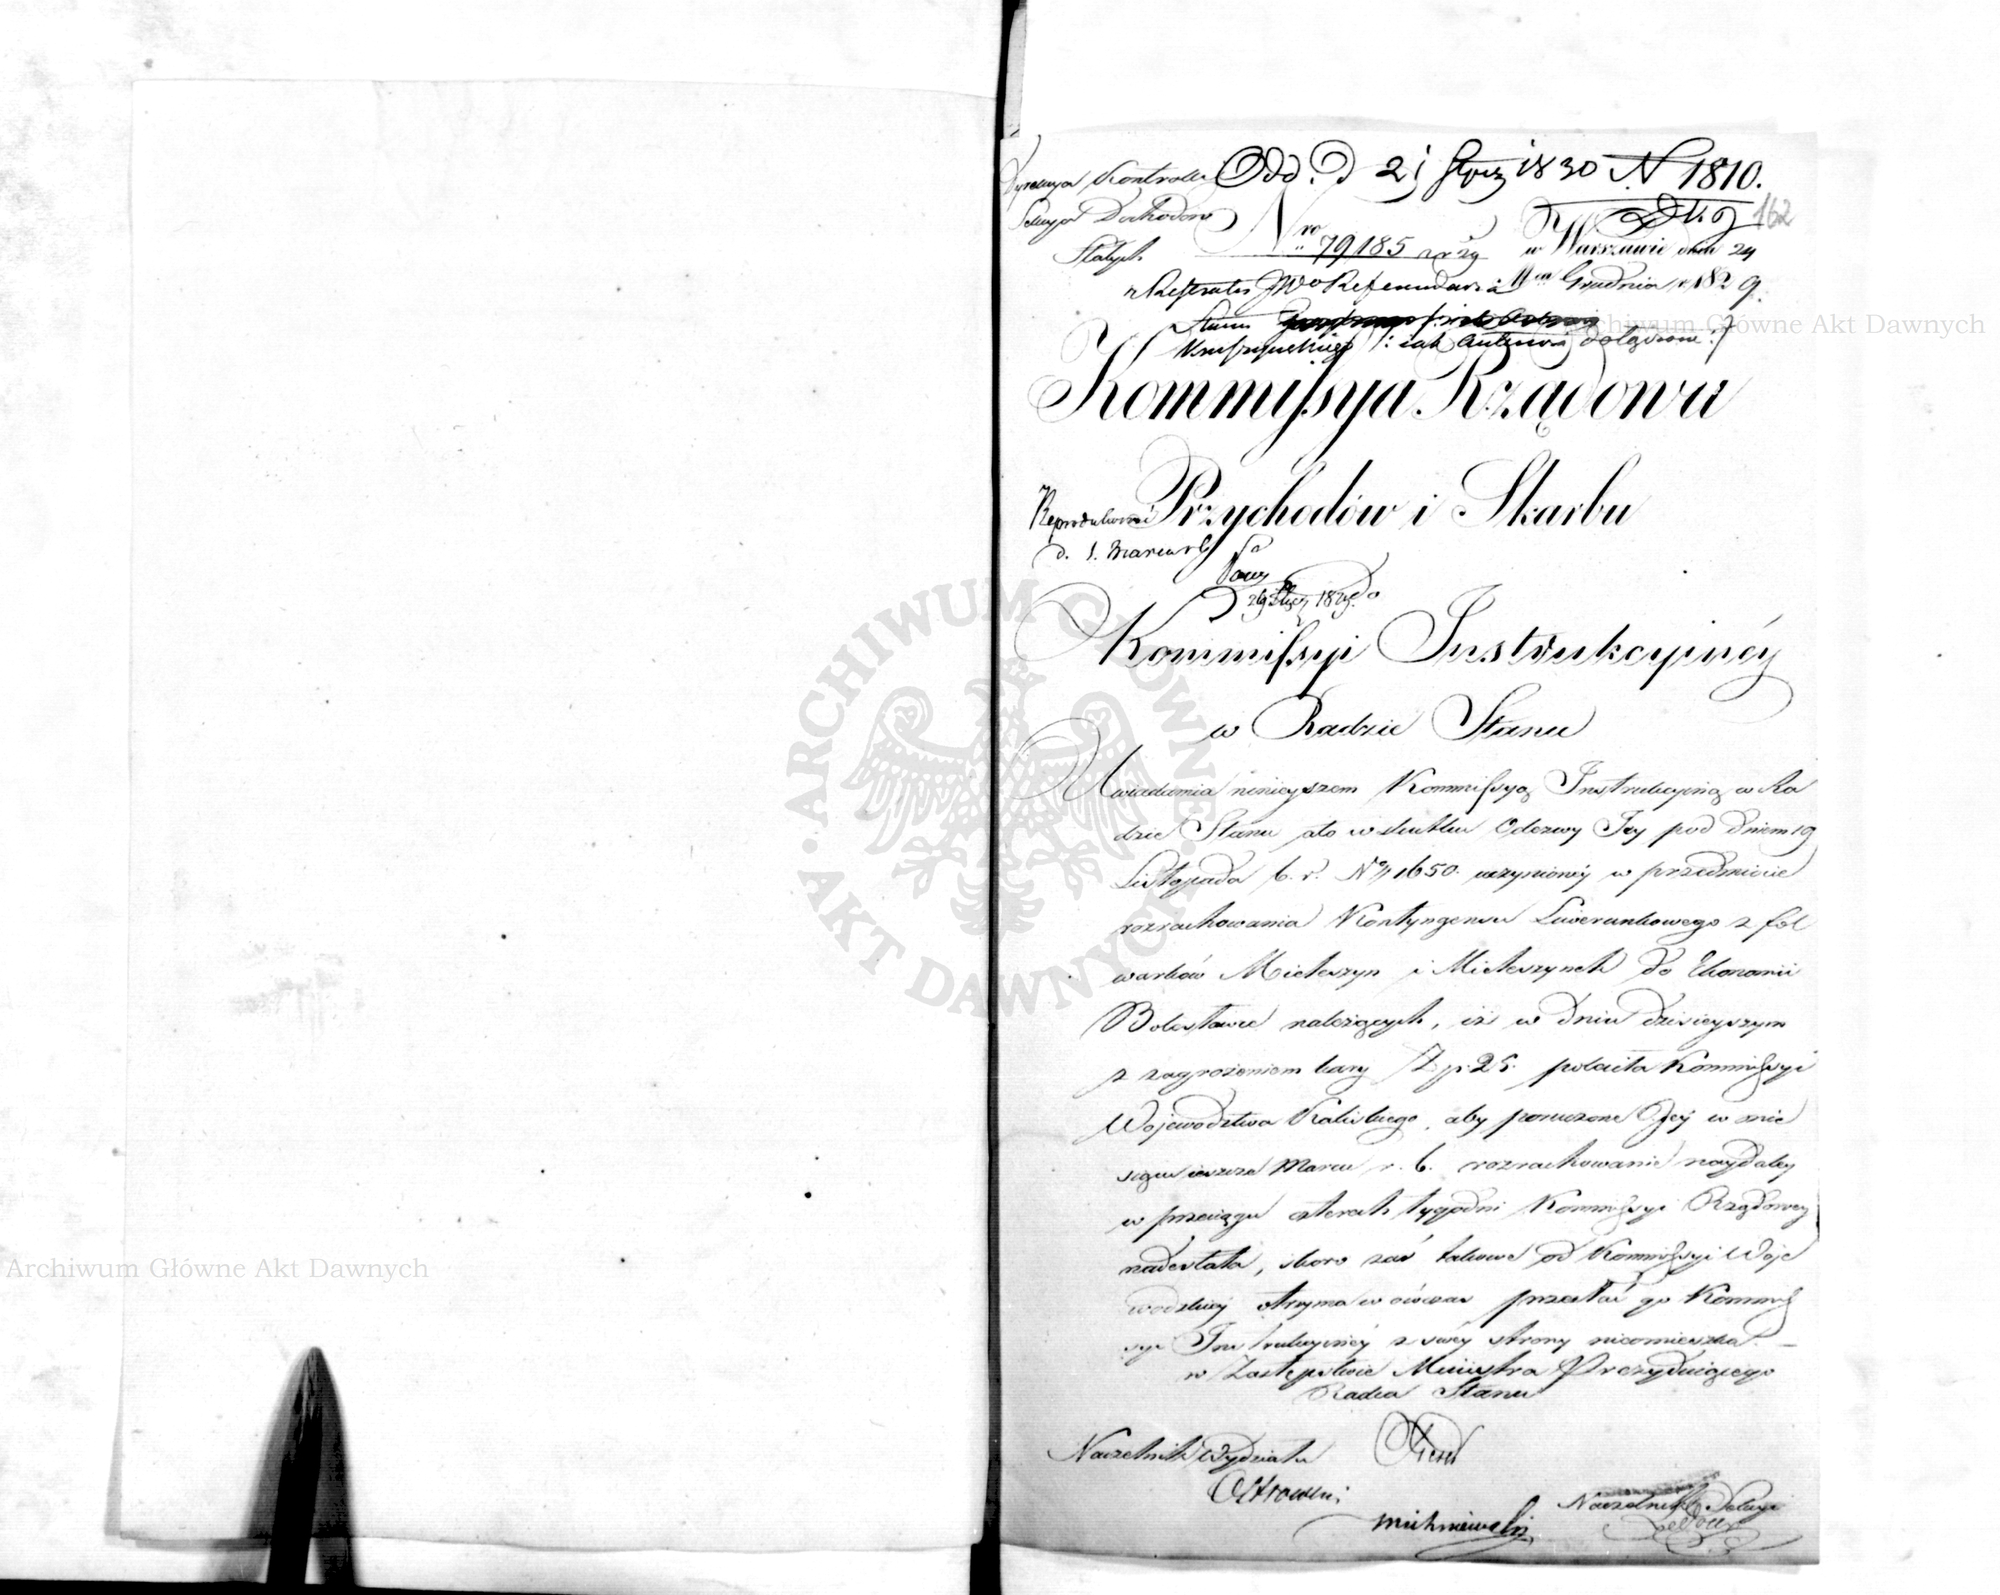 Dyrekcya Kontrolli
Sekcya Dochodów
Stałych
Odd. D 21 Stycz 1830 N 1810.
162
Nro 79185
w Warszawie dnia 24
Mca Grudnia r. 1829.
z Referatu JWo Referendarza
Stanu
: iak Antecess dołączone :/
Kommissya Rządowa
Przychodów i Skarbu
Reprodukować
d. 1. Marca r b
Do
Kommissyi Instrukcyinéy
w Radzie Stanu
Uwiadomia ninieyszem Kommissyą Instrukcyiną w Ra
dzie Stanu że w skutku Odezwy Jéy pod dniem 19
Listopada b. r. No 1650. uczynionéy w przedmiocie
rozrachowania Kontyngensu Liwerunkowego z fol
warków Mieleszyn i Mieleszynek do Ekonomii
Bolesławiec należących, iż w dniu dzisieyszym
z zagrożeniem kary Zł.p. 25. poleciła Kommissyi
Województwa Kaliskiego, aby poruczone Jéy w mie
siącu ieszcze Marcu r. b. rozrachowanie naydaléy
w przeciągu czterech tygodni Kommissyi Rządowéy
nadesłała, skoro zaś takowe od Kommissyi Woje
wódzkiéy otrzyma wówczas przesłać go Kommis
syi Instrukcyinéy z swéy strony nieomieszka. —
w Zastępstwie Ministra Prezyduiącego
Radca Stanu
Naczelnik Wydziału
Ostrowski
Michniewski
Naczelnik Sekcyi
Archiwum Główne Akt Dawnych
Archiwum Główne Akt Dawnych
ARCHIWUM GŁÓWNE AKT DAWNYCH